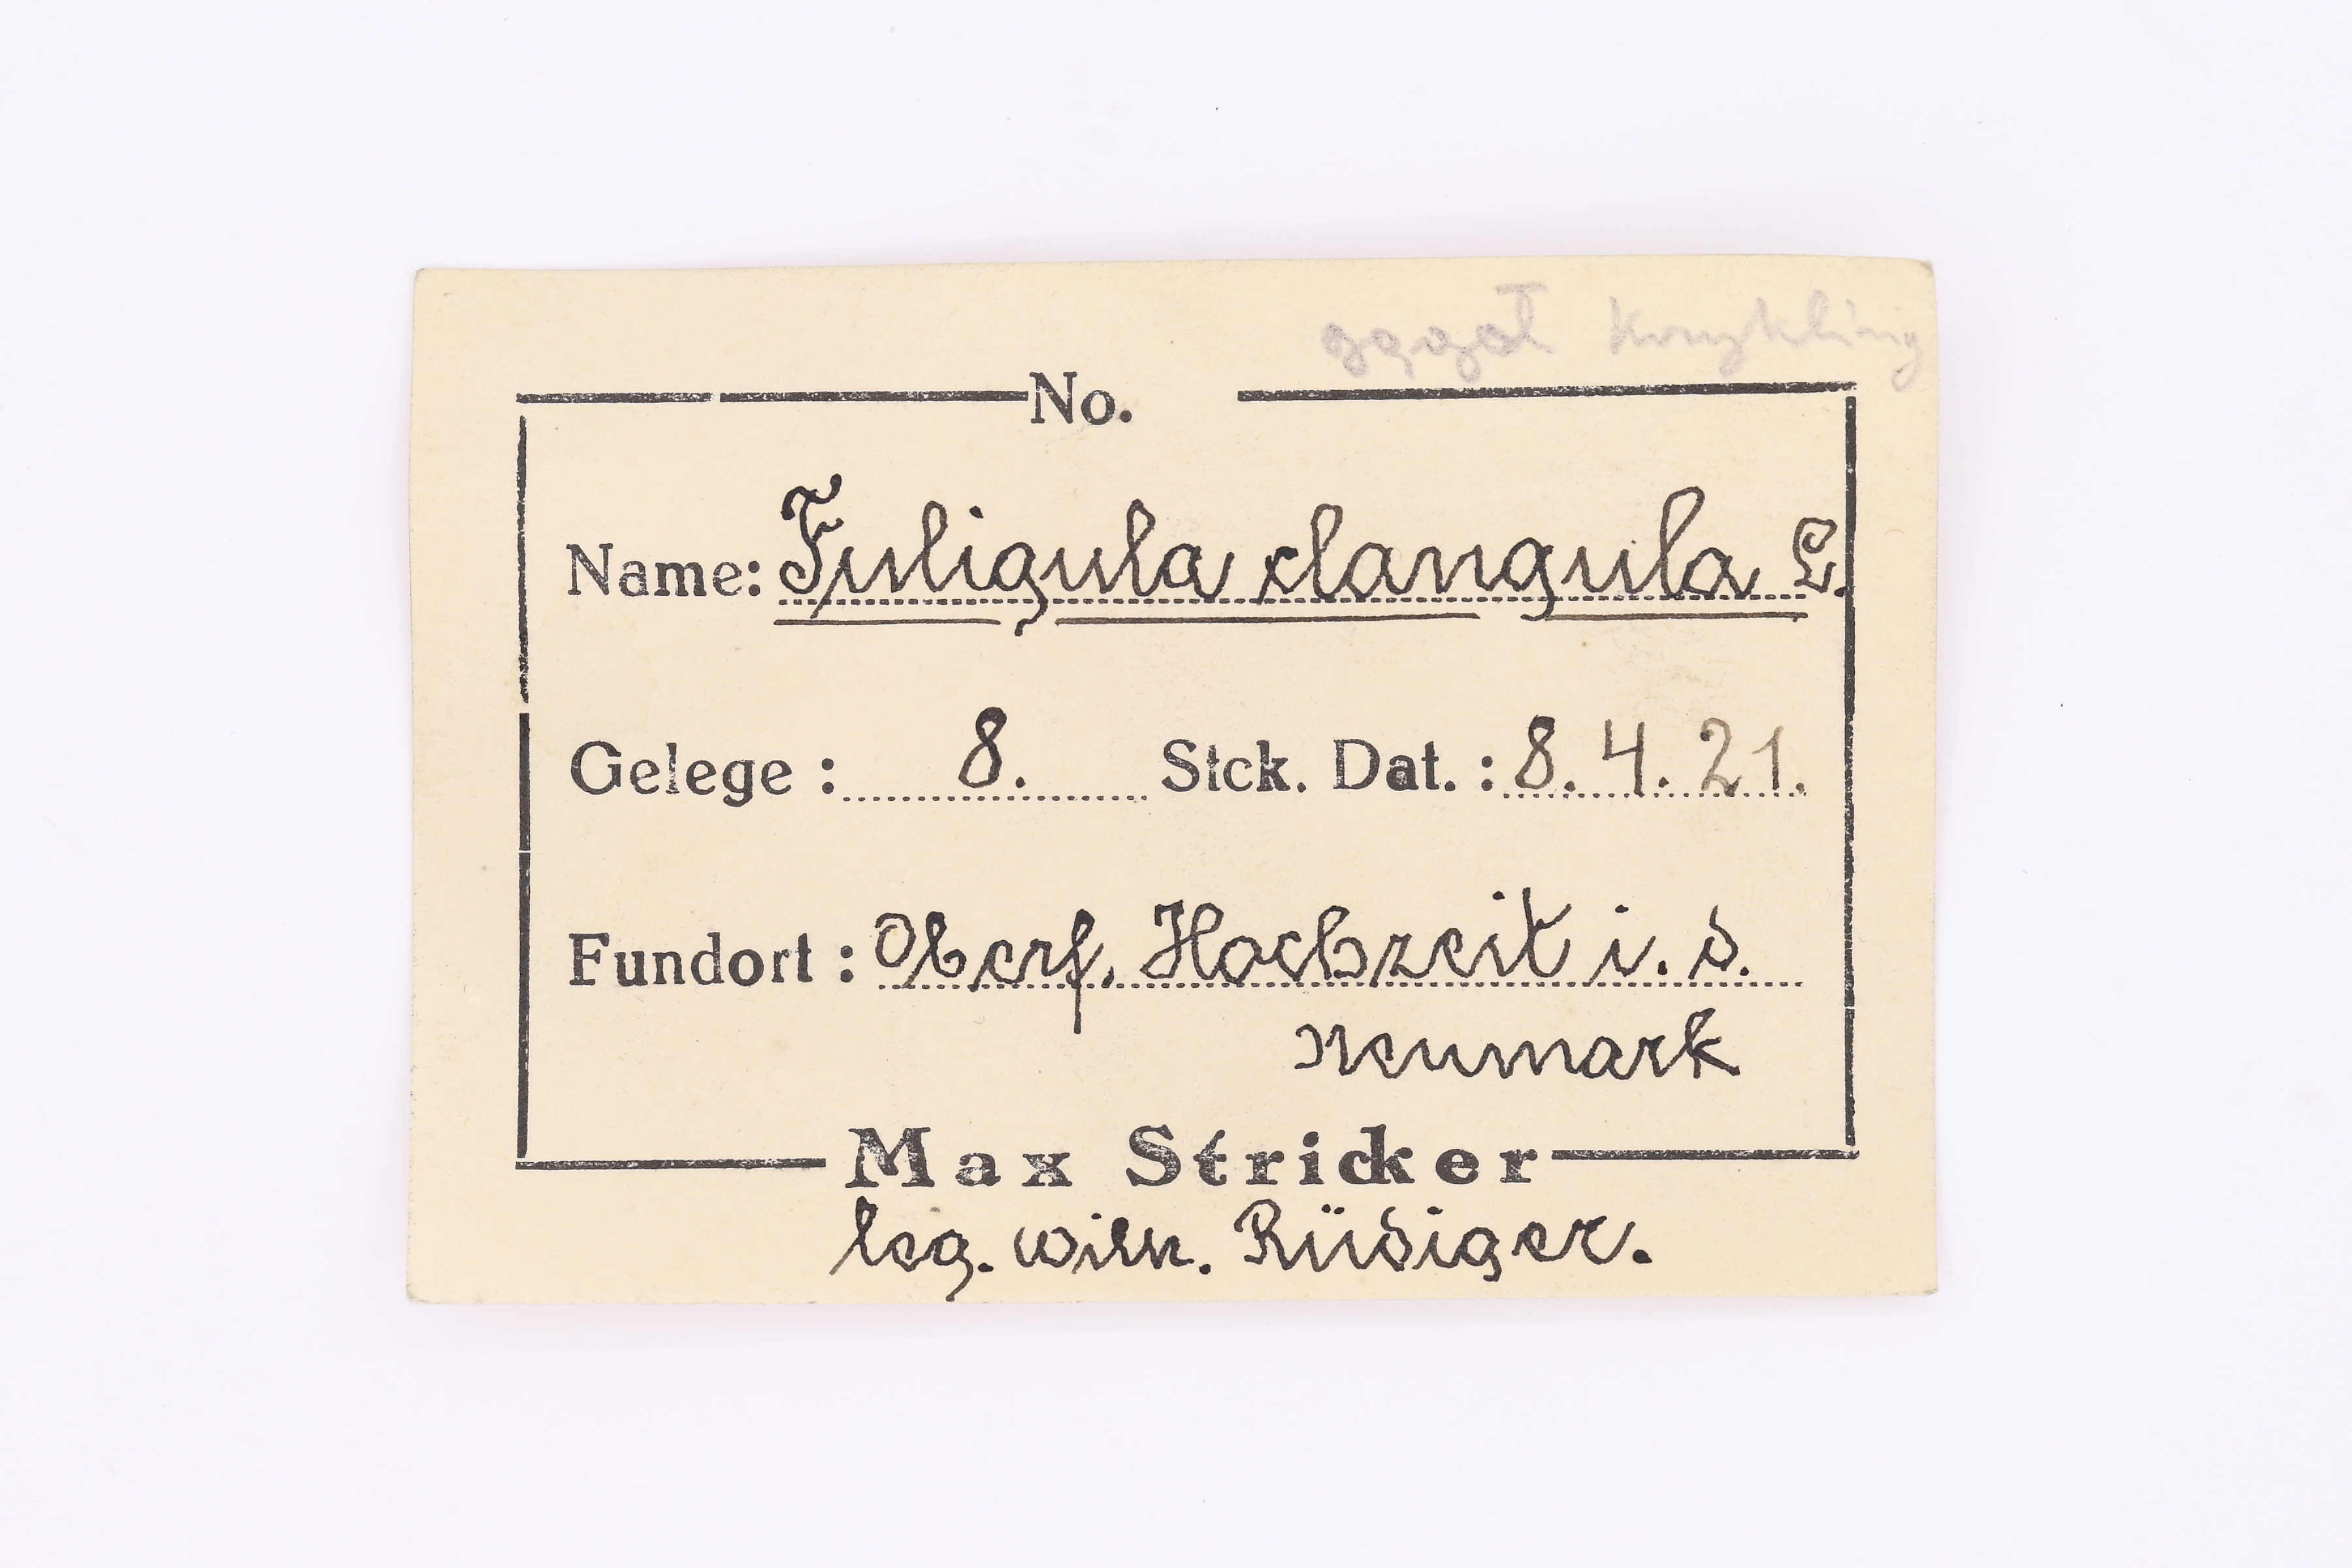 No.
Name: Fuligula clangula L.
Gelege : 8. Stck. Dat. : 8. 4. 21.
Fundort : Oberf. Hochzeit i. d.
Neumark
Max Stricker
leg. Wilh. Rüdiger.